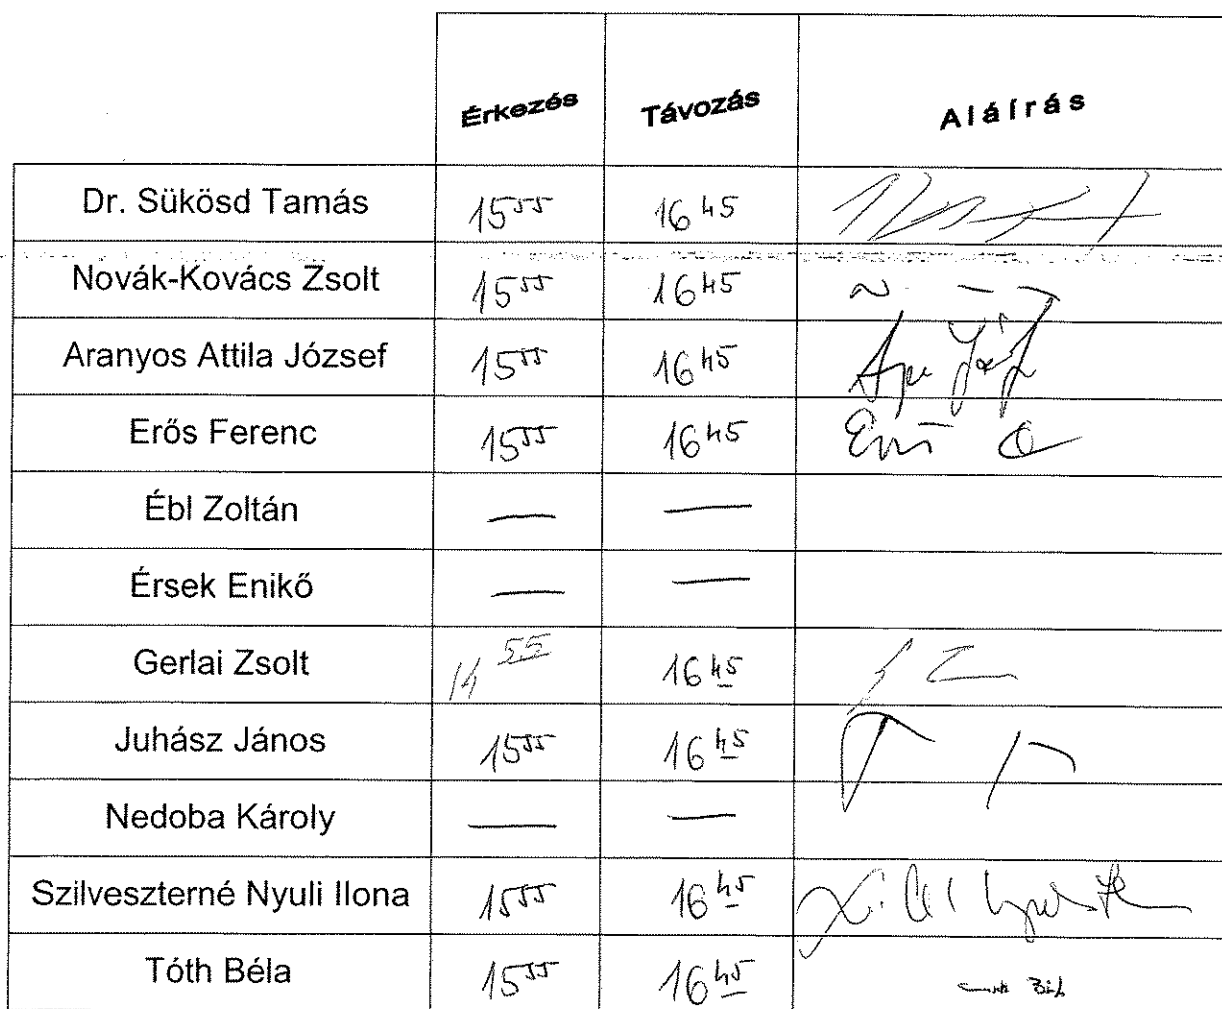 Érkezés Távozás Aláírás
Dr. Sükösd Tamás 15⁵⁵ 16⁴⁵
Novák-Kovács Zsolt 15⁵⁵ 16⁴⁵
Aranyos Attila József 15⁵⁵ 16⁴⁵
Erős Ferenc 15⁵⁵ 16⁴⁵
Ébl Zoltán — —
Érsek Enikő — —
Gerlai Zsolt ⁵⁵ 16⁴⁵
Juhász János 15⁵⁵ 16⁴⁵
Nedoba Károly — —
Szilveszterné Nyuli Ilona 15⁵⁵ 16⁴⁵
Tóth Béla 15⁵⁵ 16⁴⁵